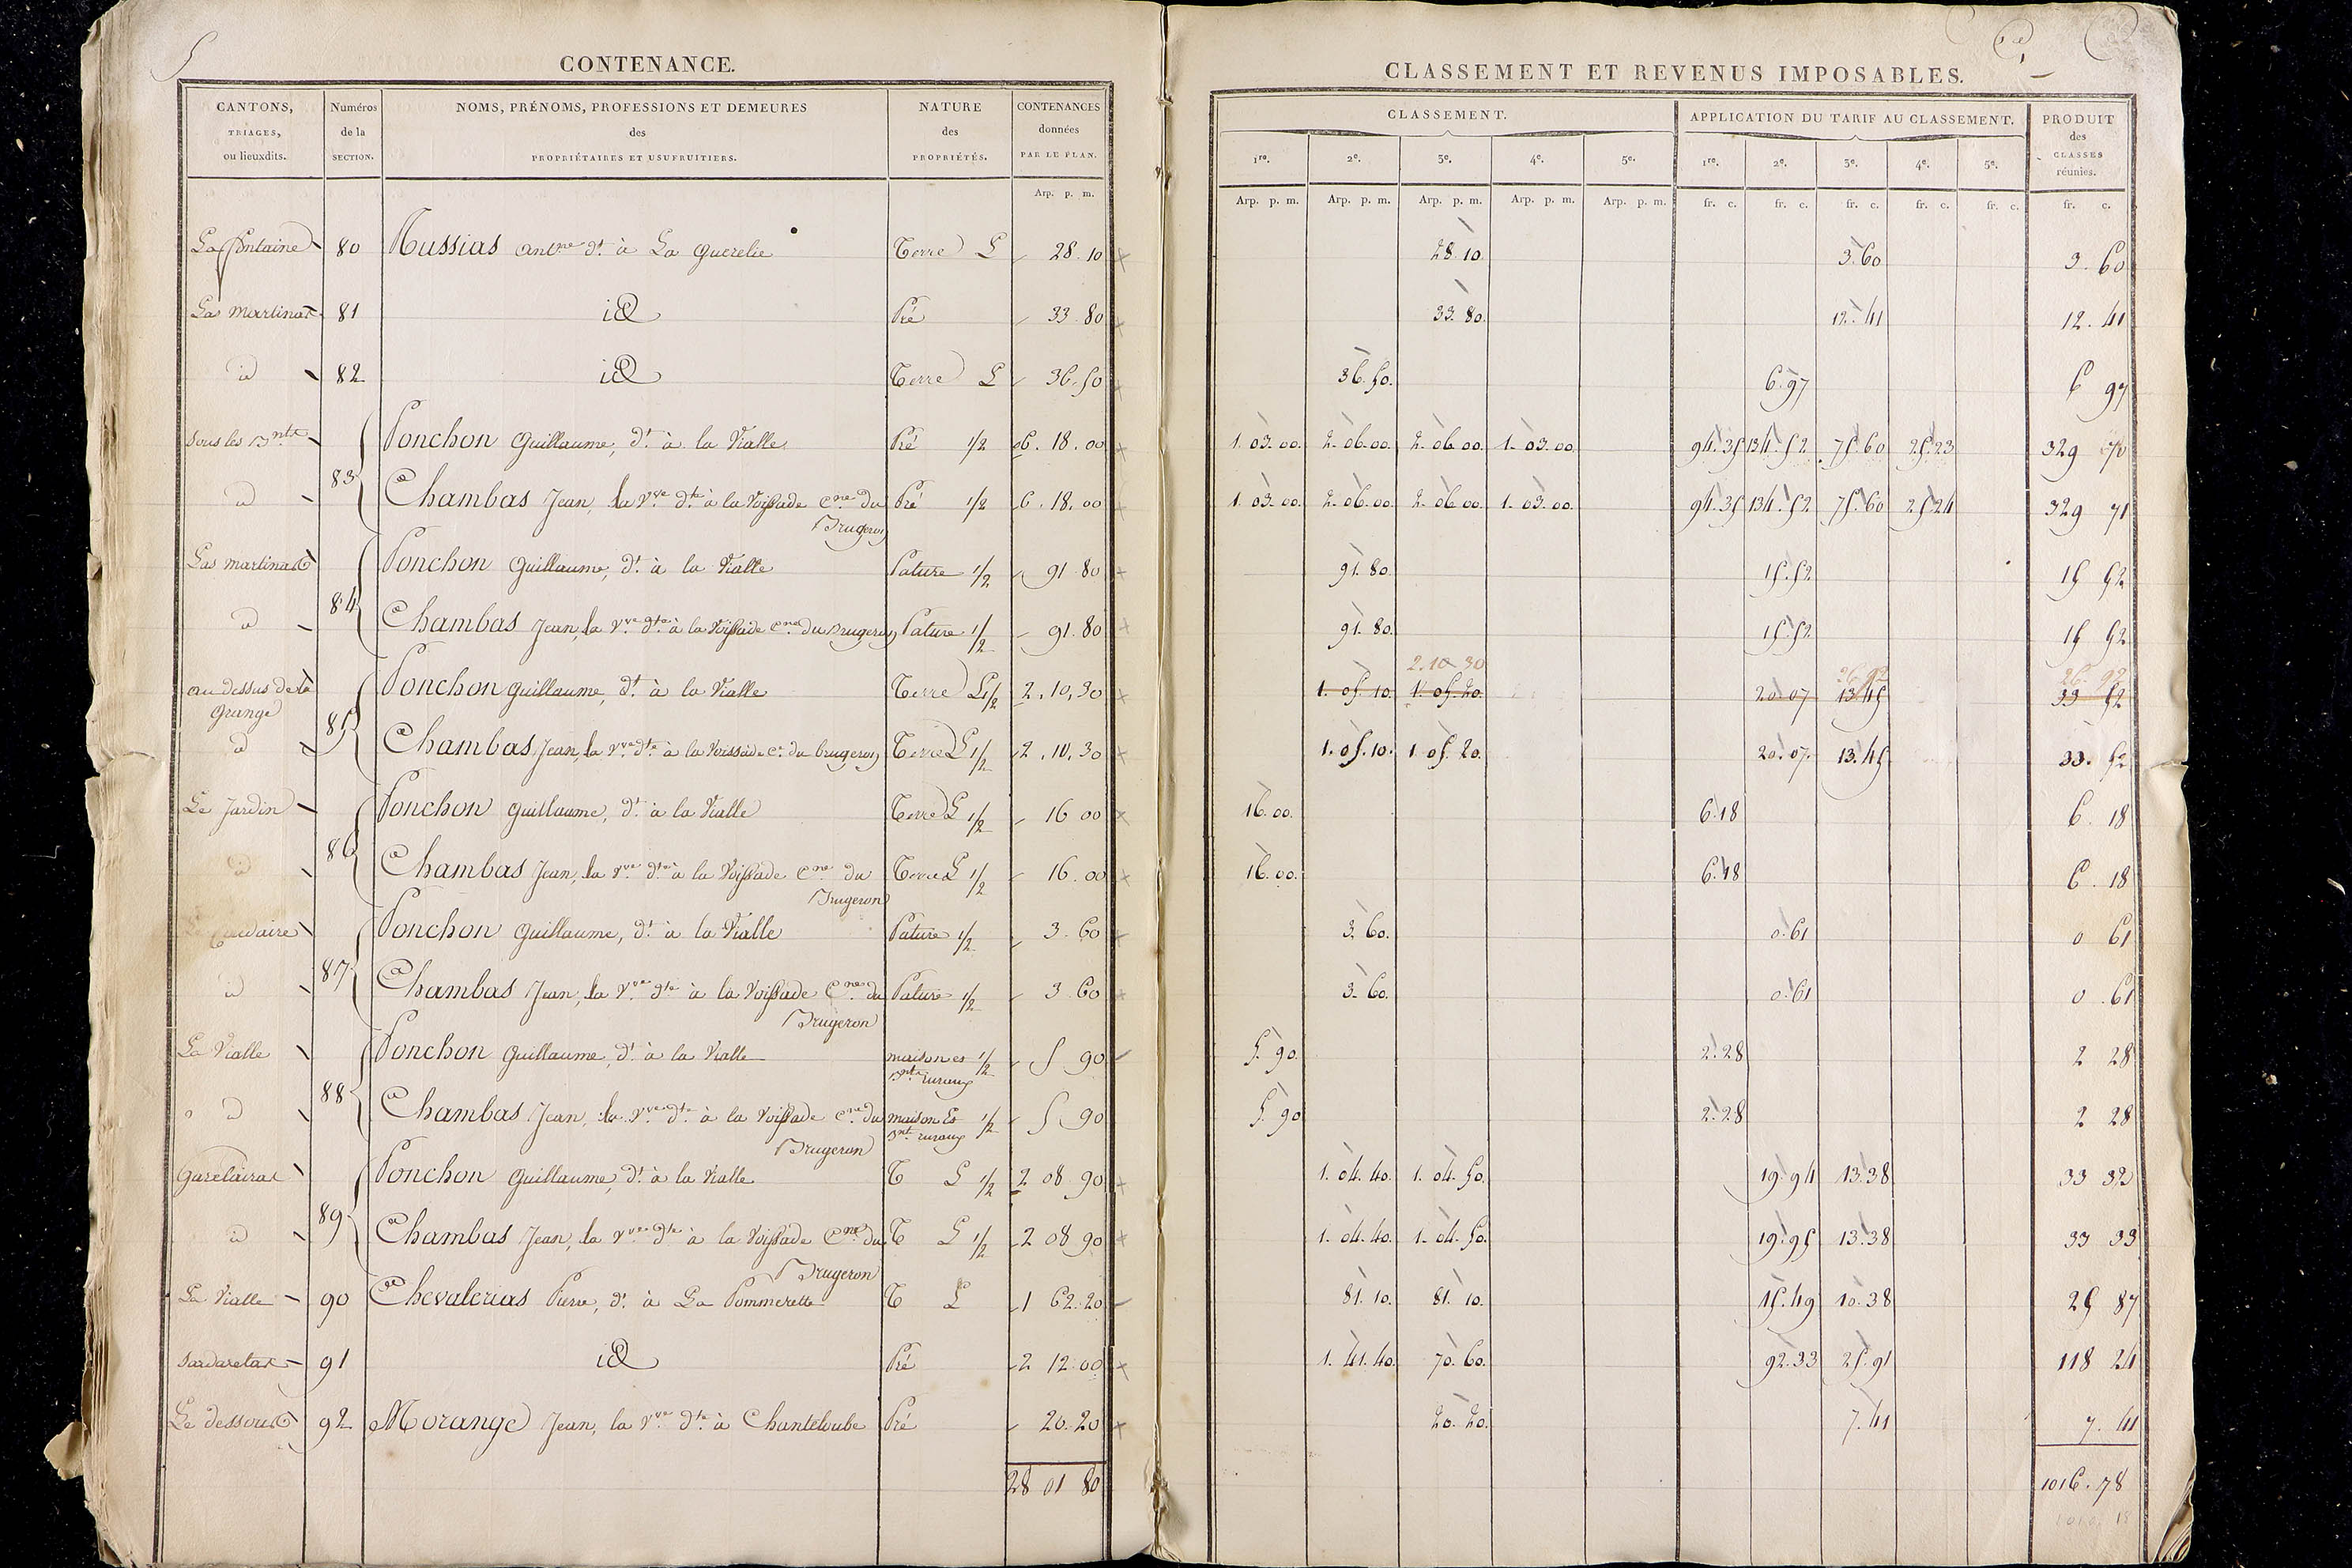 CONTENANCE.
CANTONS, TRIAGES, ou lieuxdits. | Numéros de la SECTION. | NOMS, PRÉNOMS, PROFESSIONS ET DEMEURES des PROPRIÉTAIRES ET USUFRUITIERS. | NATURE des PROPRIÉTÉS. | CONTENANCES données PAR LE PLAN.
Arp. p. m.
CLASSEMENT ET REVENUS IMPOSABLES.
CLASSEMENT. | APPLICATION DU TARIF AU CLASSEMENT. | PRODUIT des CLASSES réunies.
1re. 2e. 3e. 4e. 5e. 1re. 2e. 3e. 4e. 5e.
Arp. p. m. Arp. p. m. Arp. p. m. Arp. p. m. Arp. p. m. fr. c. fr. c. fr. c. fr. c. fr. c. fr. c.
La fontaine 80 Mussias antne dt à La Querelie Terre L 28.10 28.10 3.60 3.60
Las martinas 81 id Pré 33.80 33.80 12.41 12.41
id 82 id Terre L 36.50 36.50 6.97 6 97
sous les Bnts 83 Ponchon Guillaume, dt à la Vialle Pré 1/2 6.18.00 1.03.00 2.06.00 2.06.00 1.03.00 94.35 134.52 75.60 25.23 329 70
id Chambas Jean, la Vve dte à la Voissade Cne du Brugeron Pré 1/2 6.18.00 1.03.00 2.06.00 2.06.00 1.03.00 94.35 134.52 75.60 25.24 329 71
Las martinas 84 Ponchon Guillaume, dt à la Vialle Pature 1/2 91 80 91.80 15.52 15 52
id Chambas Jean, la Vve dte à la Voissade Cne du Brugeron Pature 1/2 91.80 91.80 15.52 15 52
2.10 30 26.92 26.92
au dessus de la Grange 85 Ponchon Guillaume, dt à la Vialle Terre L 1/2 2.10.30 1.05.10 1.05.20 20.07 13.45 33 52
id Chambas Jean, la Vve dte à la Voissade Cne du brugeron Terre L 1/2 2.10.30 1.05.10 1.05.20 20.07 13.45 33.52
Le Jardin 86 Ponchon Guillaume, dt à la Vialle Terre L 1/2 16 00 16.00 6.18 6.18
id Chambas Jean, la Vve dte à la Voissade Cne du Brugeron Terre L 1/2 16.00 16.00 6.18 6.18
87 Ponchon Guillaume, dt à la Vialle Pature 1/2 3.60 3.60 0.61 0 61
id Chambas Jean, la Vve dte à la Voissade Cne du Brugeron Pature 1/2 3 60 3.60 0.61 0.61
La Vialle 88 Ponchon Guillaume, dt à la Vialle maison et Bnts ruraux 1/2 5 90 5.90 2.28 2 28
id Chambas Jean, la Vve dte à la Voissade Cne du Brugeron maison Et Bnt ruraux 1/2 5 90 5.90 2.28 2 28
89 Ponchon Guillaume, dt à la Vialle T L 1/2 2 08 90 1.04.40 1.04.50 19.94 13.38 33 32
id Chambas Jean, la Vve dte à la Voissade Cne du Brugeron T L 1/2 2 08 90 1.04.40 1.04.50 19.95 13.38 33 33
La Vialle 90 Chevalerias Pierre, dt à La Pommerette T L 1 62.20 81.10 81.10 15.49 10.38 25 87
Sardaretas 91 id Pré 2 12.00 1.41.40 70.60 92.33 25.91 118 24
Le dessous 92 Morange Jean, la Vve dte à Chanteloube Pré 20.20 20.20 7.41 7.41
28 01 80 1016.78